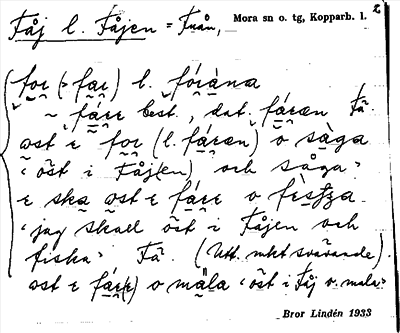 Fåj l. Fåjen = Fuån,
Mora sn o. tg, Kopparb. l.
2
for (> far) l. fóràna
~ fárɛ best., dat. fáræn Fä.
ost ɛ for (l. fáræn) o sàga
‹öst i Fåj(en) och såga›
ɛ ska ost ɛ fárɛ o
‹jag skall öst i Fåjen och
fiska› Fä. (Utt. mkt svävande).
ost ɛ fár(ɛ) o mäla ‹öst i Fåj o. mala›
Bror Lindén 1933